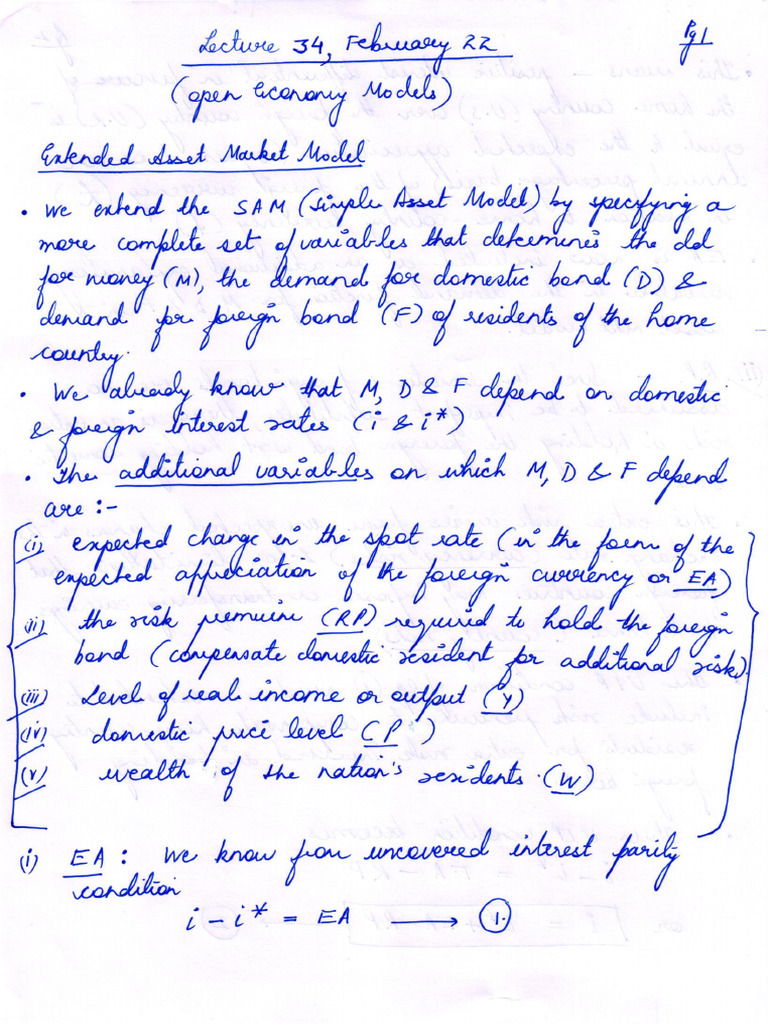 Lecture 34, February 22
Pg 1
(open Economy Models)
Extended Asset Market Model
• We extend the SAM (Simple Asset Model) by specifying a
more complete set of variables that determines the dd
for money (M), the demand for domestic bond (D) &
demand for foreign bond (F) of residents of the home
country.
• We already know that M, D & F depend on domestic
& foreign interest rates (i & i*)
• The additional variables on which M, D & F depend
are :-
(i) expected change in the spot rate (in the form of the
expected appreciation of the foreign currency or EA)
(ii) the risk premium (RP) required to hold the foreign
bond (compensate domestic resident for additional risk).
(iii) Level of real income or output (Y)
(iv) domestic price level (P)
(v) wealth of the nation's residents. (W)
(i) EA : We know from uncovered interest parity
condition
i - i* = EA ⟶ ①.